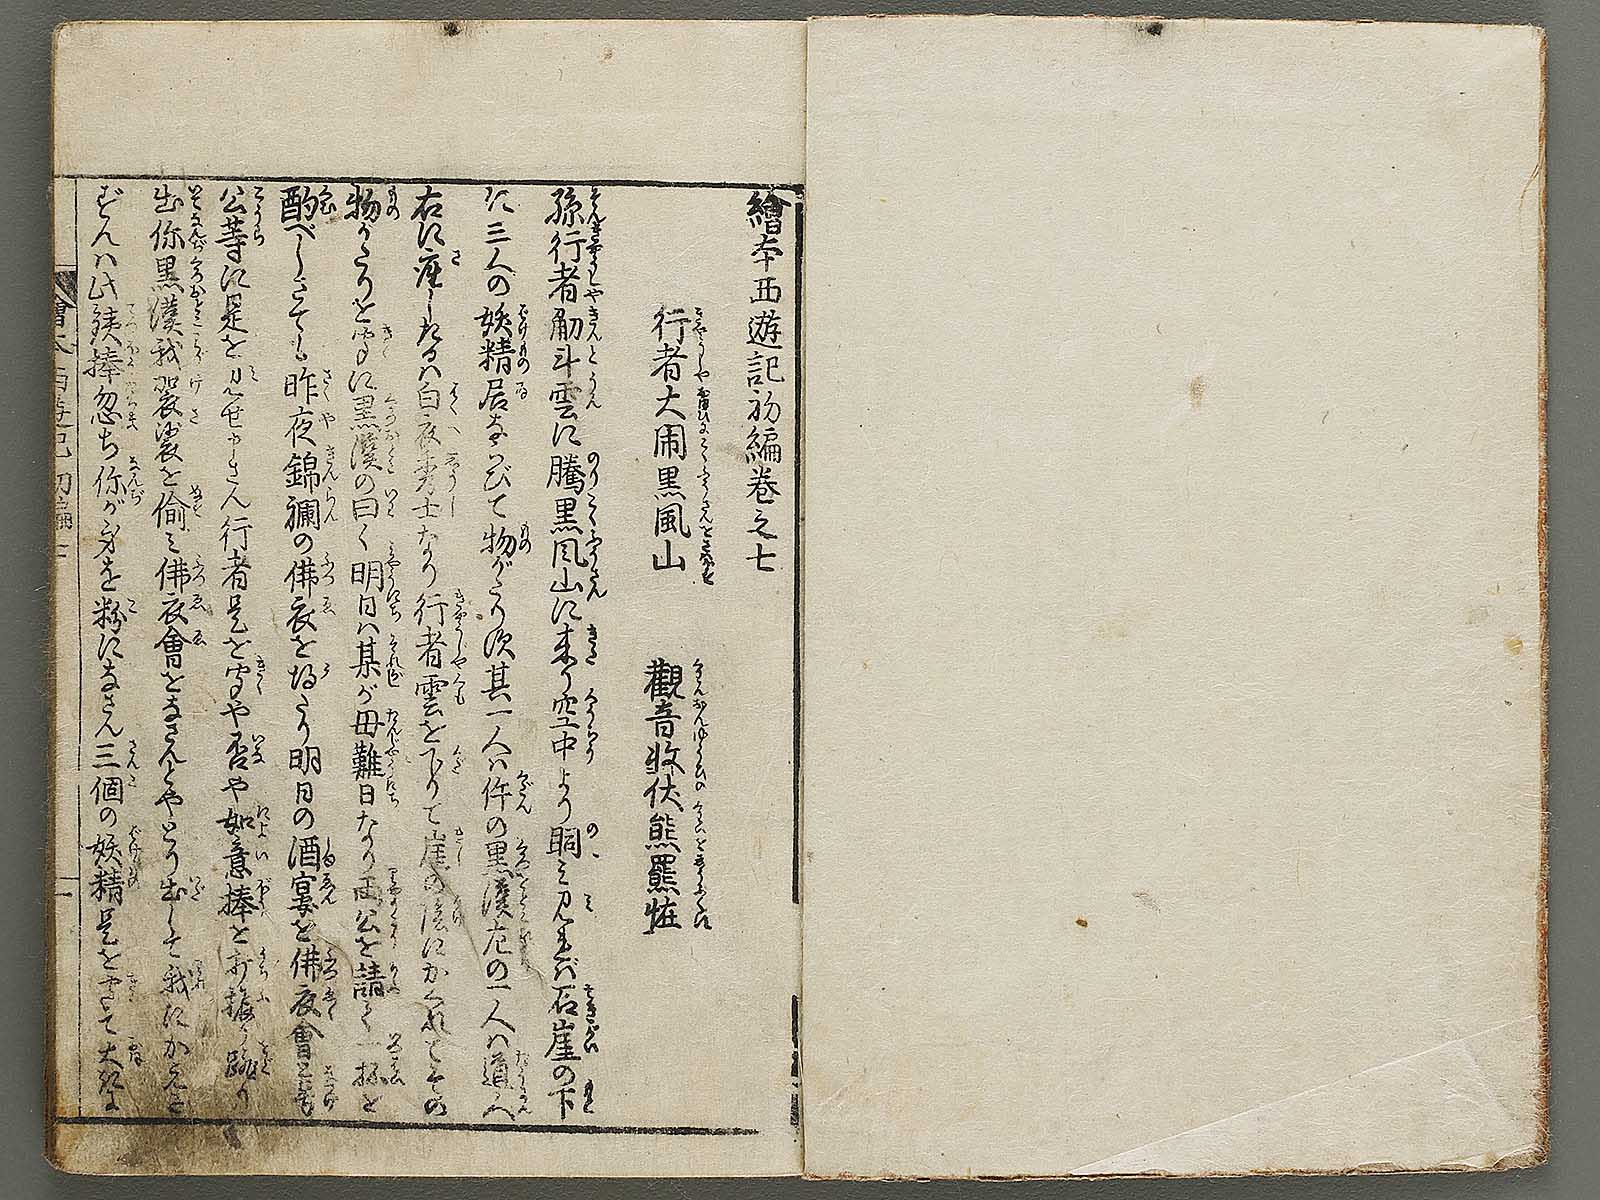 繪本西遊記初編巻之七
行者大閙黒風山　觀音收伏熊羆恠
孫行者觔斗雲に騰黒風山に来り空中より䀎み見れば石崖の下
に三人の妖精居ならびて物がたり須其一人は件の黒漢左の一人は道人
右に座したるは白衣秀士なり行者雲を下りて崖の陰にかくれとその
物がたりを聞に黒漢の曰く明日は某が母難日なり両公を請て一杯を
酌べしさても昨夜錦襴の佛衣を得たり明日の酒宴を佛衣會と
公等に是を見せ申さん行者是を聞や否や如意棒を打振り跳り
出你黒漢我袈裟を偷み佛衣會をなさんとやとり出して我にかへさ
ずんば此鉄棒忽ち你が身を粉になさん三個の妖精是を聞て大に
繪本西遊記初編七
一